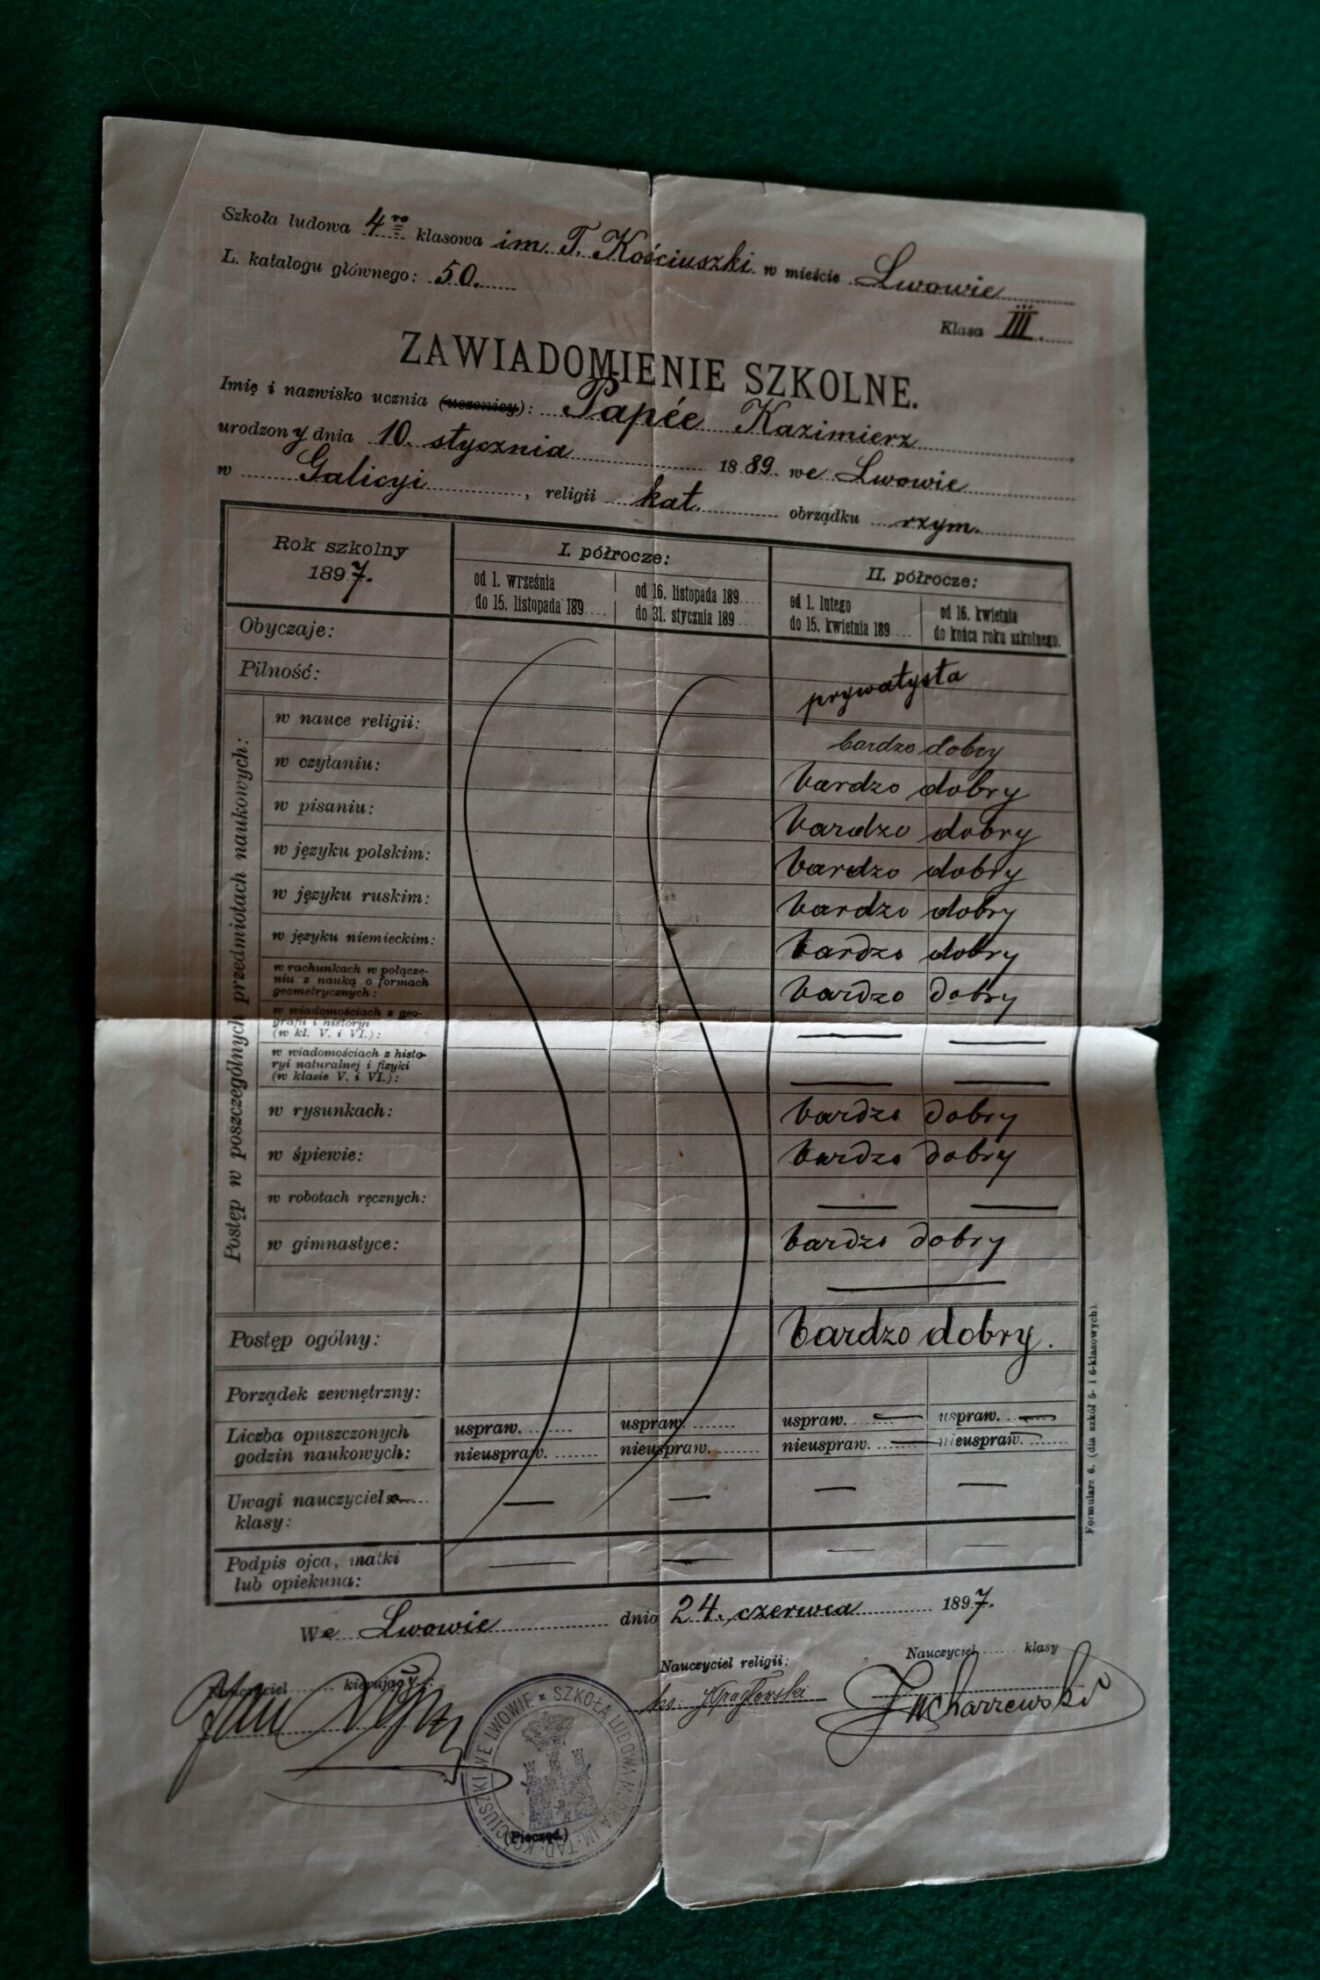 Szkoła ludowa 4ro klasowa im. T. Kościuszki w mieście Lwowie
L. katalogu głównego: 50.
Klasa III.
ZAWIADOMIENIE SZKOLNE.
Imię i nazwisko ucznia (uczenicy): Papée Kazimierz
urodzony dnia 10. stycznia 1889 we Lwowie
w Galicyi, religii kat. obrządku rzym.
Rok szkolny 1897.
I. półrocze:
II. półrocze:
od 1. września do 15. listopada 189
od 16. listopada 189 do 31. stycznia 189
od 1. lutego do 15. kwietnia 189
od 16. kwietnia do końca roku szkolnego.
Obyczaje:
Pilność: prywatysta
Postęp w poszczególnych przedmiotach naukowych:
w nauce religii: bardzo dobry
w czytaniu: bardzo dobry
w pisaniu: bardzo dobry
w języku polskim: bardzo dobry
w języku ruskim: bardzo dobry
w języku niemieckim: bardzo dobry
w rachunkach w połącze-
niu z nauką o formach
geometrycznych: bardzo dobry
w wiadomościach z geo-
grafii i historyi
(w kl. V. i VI.): — —
w wiadomościach z histo-
ryi naturalnej i fizyki
(w klasie V. i VI.): — —
w rysunkach: bardzo dobry
w śpiewie: bardzo dobry
w robotach ręcznych: — —
w gimnastyce: bardzo dobry
Postęp ogólny: bardzo dobry.
Porządek zewnętrzny:
Liczba opuszczonych godzin naukowych:
uspraw. uspraw. uspraw. — uspraw. —
nieuspraw. nieuspraw. nieuspraw. — nieuspraw. —
Uwagi nauczyciela klasy: — — — —
Podpis ojca, matki lub opiekuna: — — — —
Formularz 6. (dla szkół 5- i 6-klasowych).
We Lwowie dnia 24. czerwca 1897.
Nauczyciel kierujący:
Nauczyciel religii:
Nauczyciel klasy
Jan
ks.
SZKOŁA LUDOWA MĘSKA IM. TAD. KOŚCIUSZKI WE LWOWIE
(Pieczęć.)